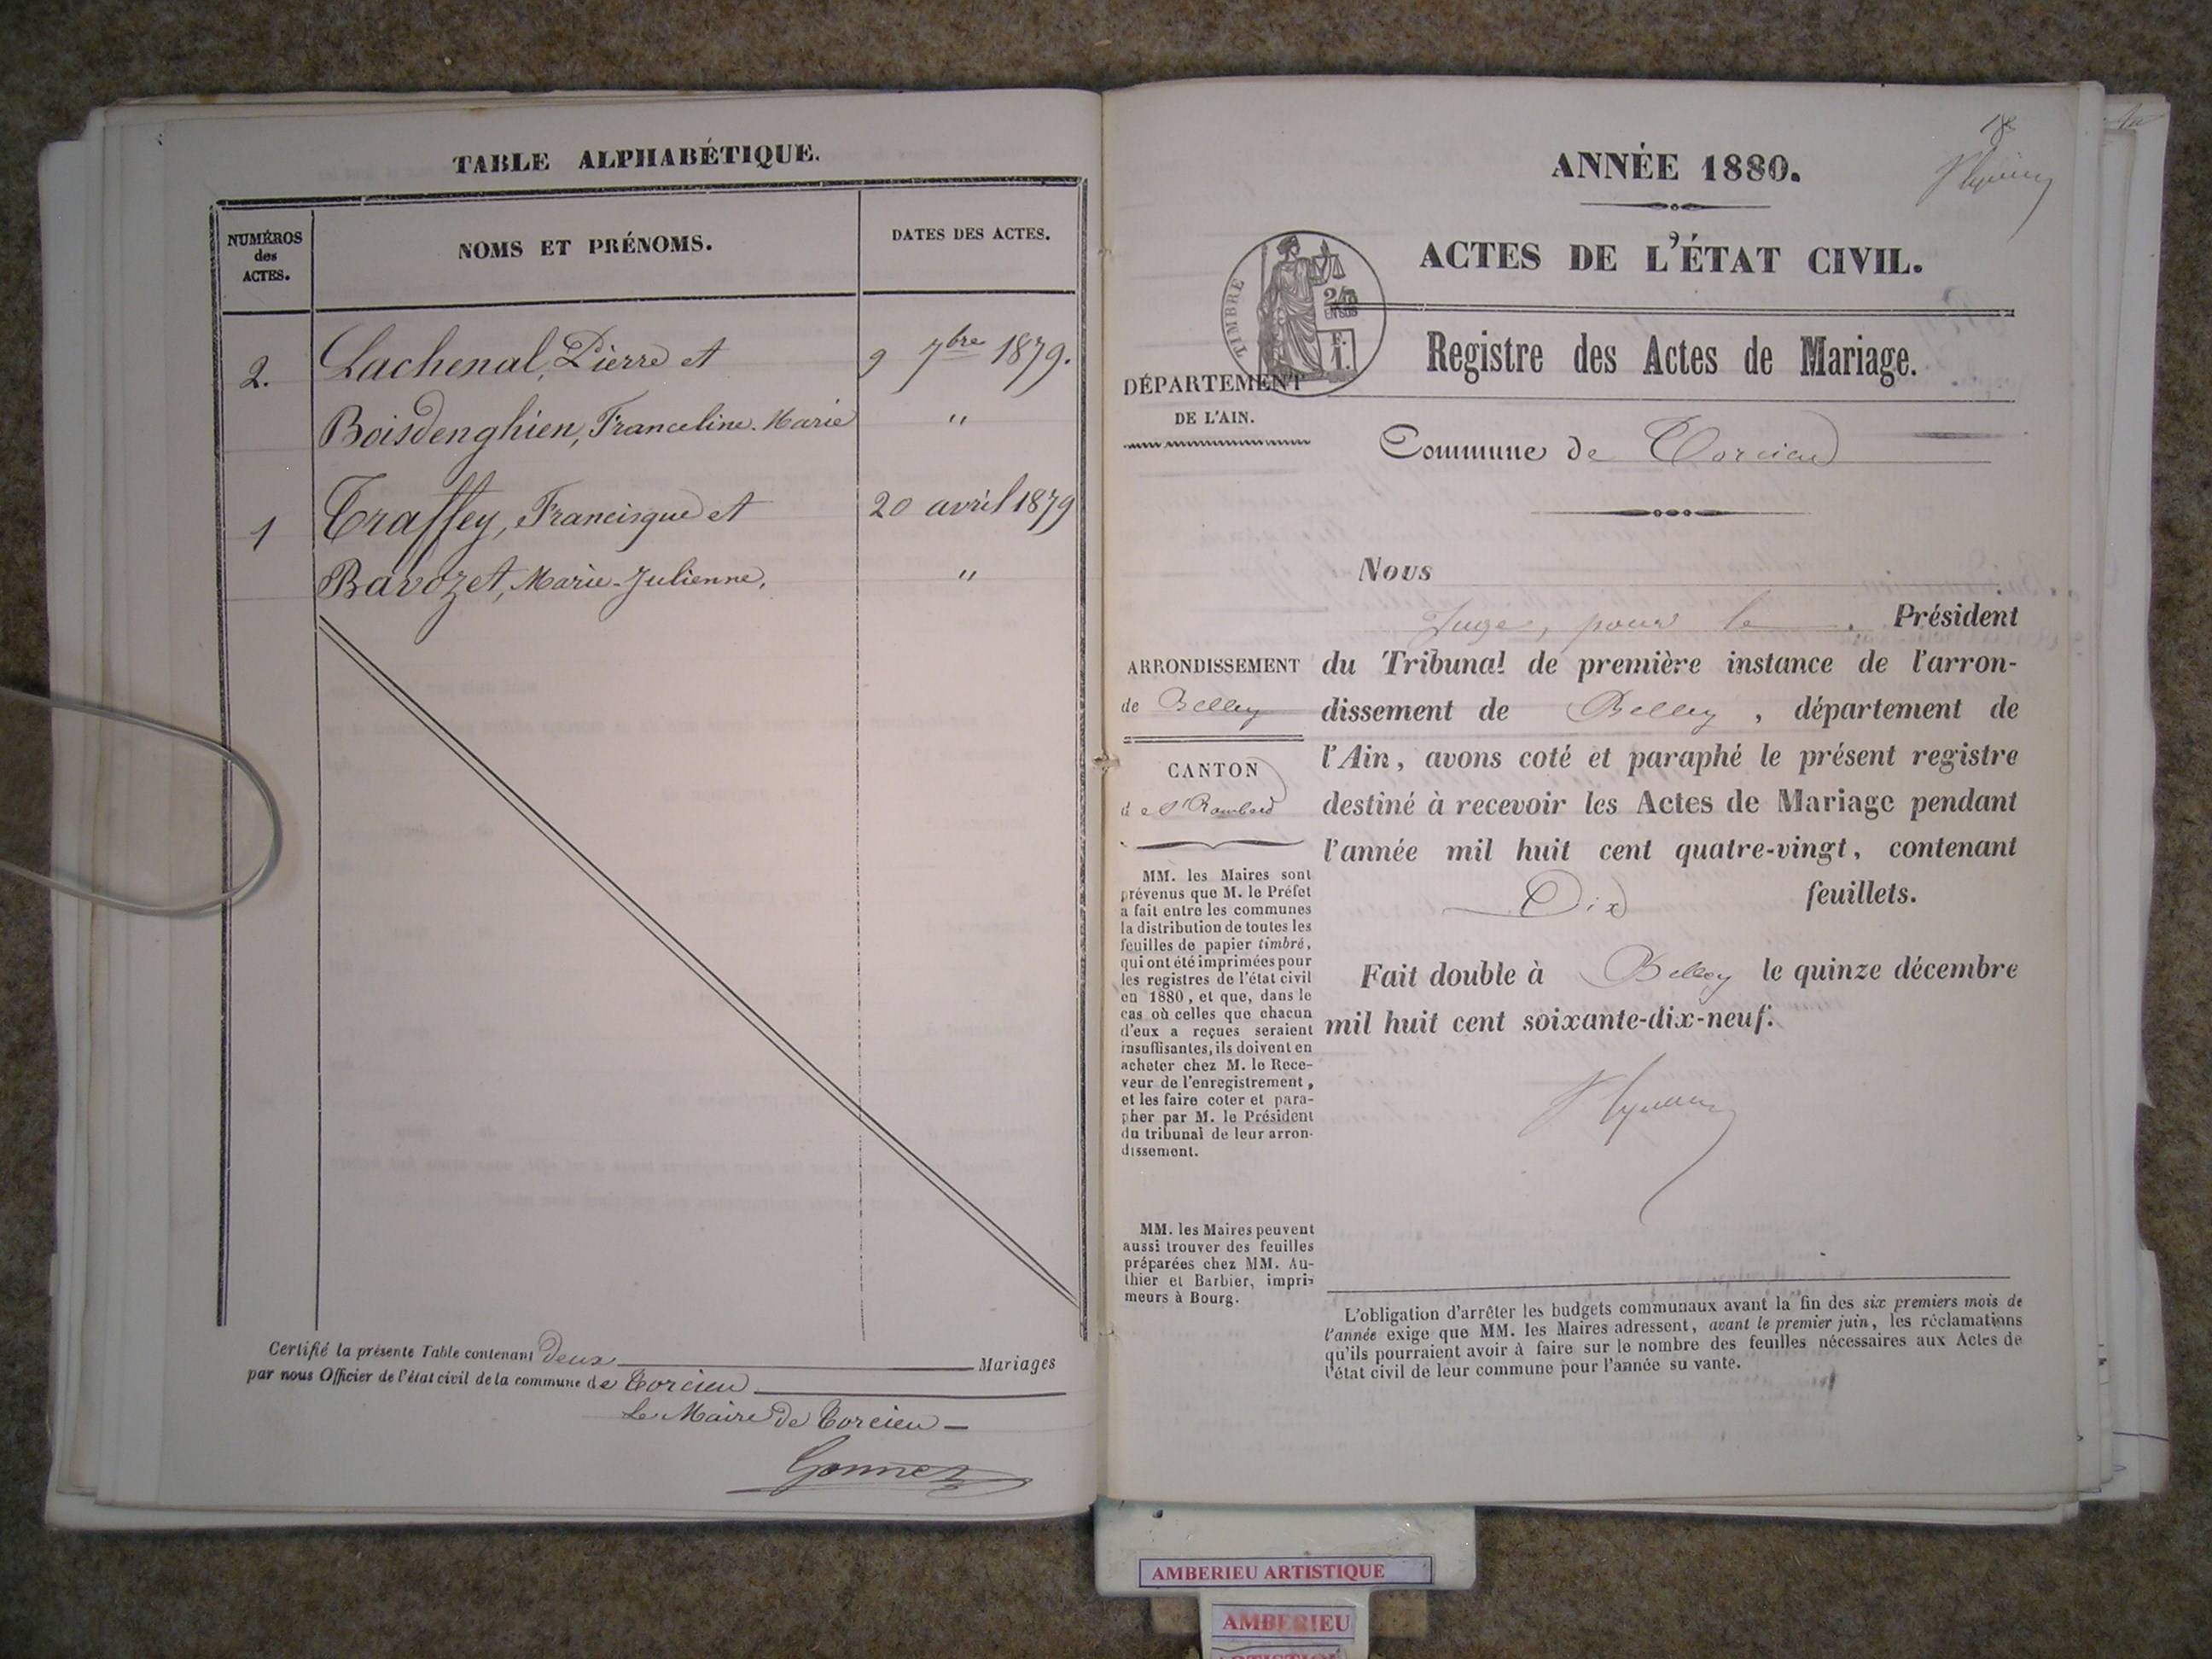 TABLE ALPHABÉTIQUE.
NUMÉROS des ACTES.
NOMS ET PRÉNOMS.
DATES DES ACTES.
2. Lachenal, Pierre et 9 7bre 1879.
Boisdenghien, Franceline-Marie "
1 Traffey, Francisque et 20 avril 1879
Bavozet, Marie-Julienne, "
Certifié la présente Table contenant deux Mariages
par nous Officier de l'état civil de la commune de Torcieu
Le Maire de Torcieu
Gonnet
ANNÉE 1880.
ACTES DE L'ÉTAT CIVIL.
TIMBRE
2/10
EN SUS
F.
1.
Registre des Actes de Mariage.
DÉPARTEMENT
DE L'AIN.
Commune de Torcieu
Nous
Juge, pour le Président
du Tribunal de première instance de l'arron-
dissement de Belley, département de
l'Ain, avons coté et paraphé le présent registre
destiné à recevoir les Actes de Mariage pendant
l'année mil huit cent quatre-vingt, contenant
Dix feuillets.
Fait double à Belley le quinze décembre
mil huit cent soixante-dix-neuf.
ARRONDISSEMENT
de Belley
CANTON
de St Rambert
MM. les Maires sont
prévenus que M. le Préfet
a fait entre les communes
la distribution de toutes les
feuilles de papier timbré,
qui ont été imprimées pour
les registres de l'état civil
en 1880, et que, dans le
cas où celles que chacun
d'eux a reçues seraient
insuffisantes, ils doivent en
acheter chez M. le Rece-
veur de l'enregistrement,
et les faire coter et para-
pher par M. le Président
du tribunal de leur arron-
dissement.
MM. les Maires peuvent
aussi trouver des feuilles
préparées chez MM. Au-
thier et Barbier, impri-
meurs à Bourg.
L'obligation d'arrêter les budgets communaux avant la fin des six premiers mois de
l'année exige que MM. les Maires adressent, avant le premier juin, les réclamations
qu'ils pourraient avoir à faire sur le nombre des feuilles nécessaires aux Actes de
l'état civil de leur commune pour l'année su vante.
AMBERIEU ARTISTIQUE
AMBERIEU
ARTISTIQUE